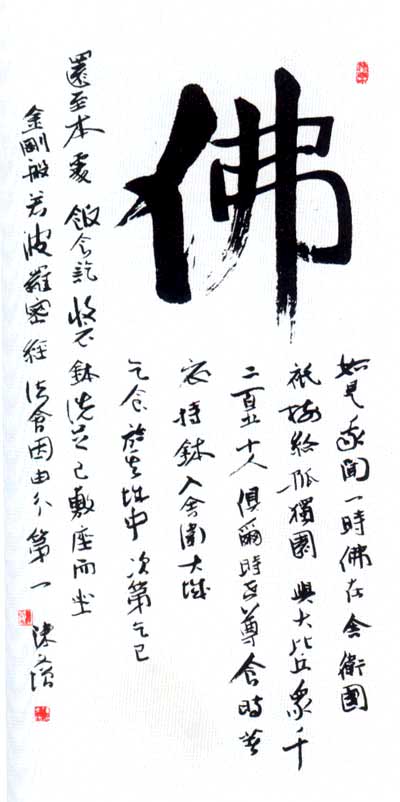 佛
如是我聞一時佛在舍衛國
祇樹給孤獨園與大比丘眾千
二百五十人俱爾時世尊食時著
衣持鉢入舍衛大城
乞食於其城中次第乞已
還至本處飯食訖收衣鉢洗足已敷座而坐
金剛般若波羅蜜經法會因由分第一
陳